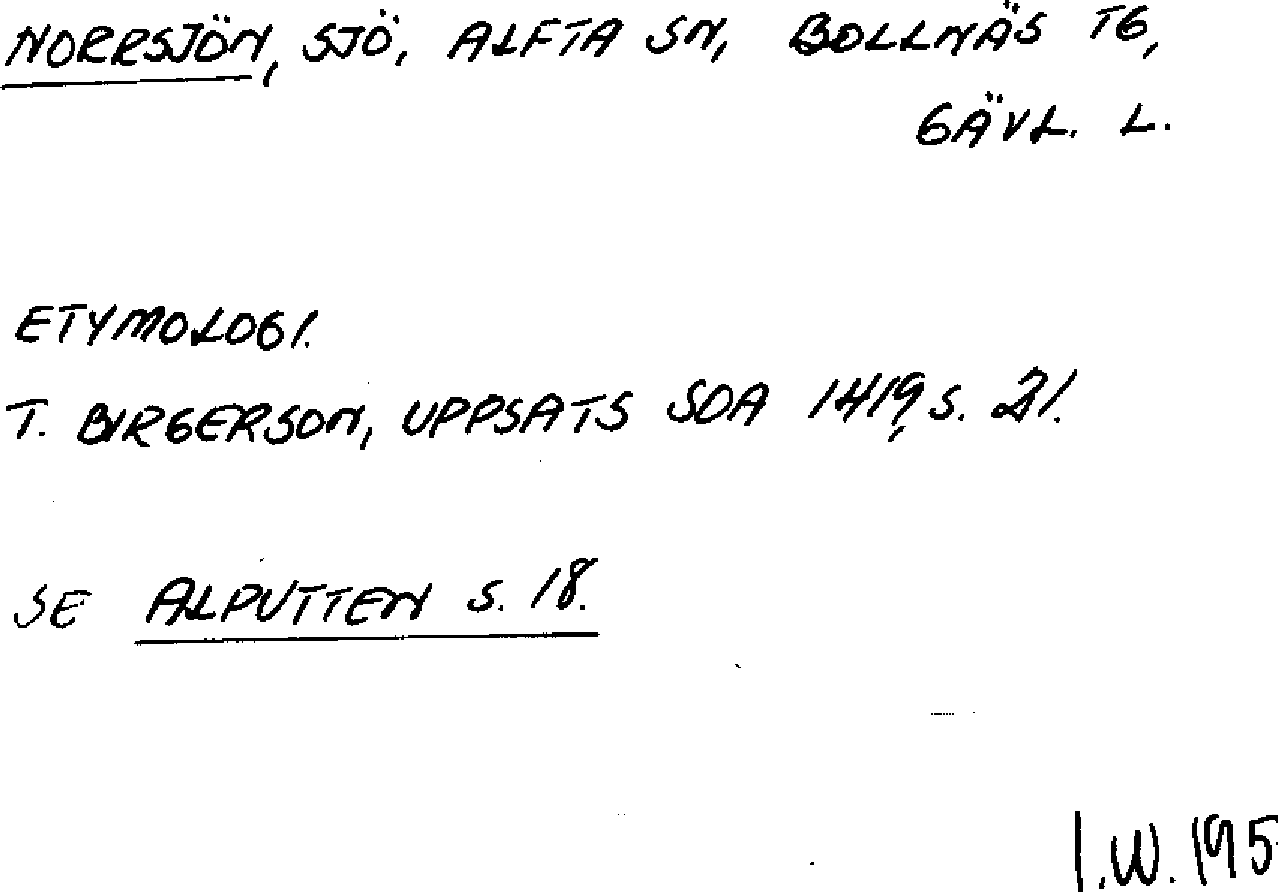 NORRSJÖN, SJÖ, ALFTA SN, BOLLNÄS TG,
GÄVL. L.
ETYMOLOGI.
T. BIRGERSON, UPPSATS SOA 1419, s. 21.
SE ALPUTTEN s. 18.
I.W. 195